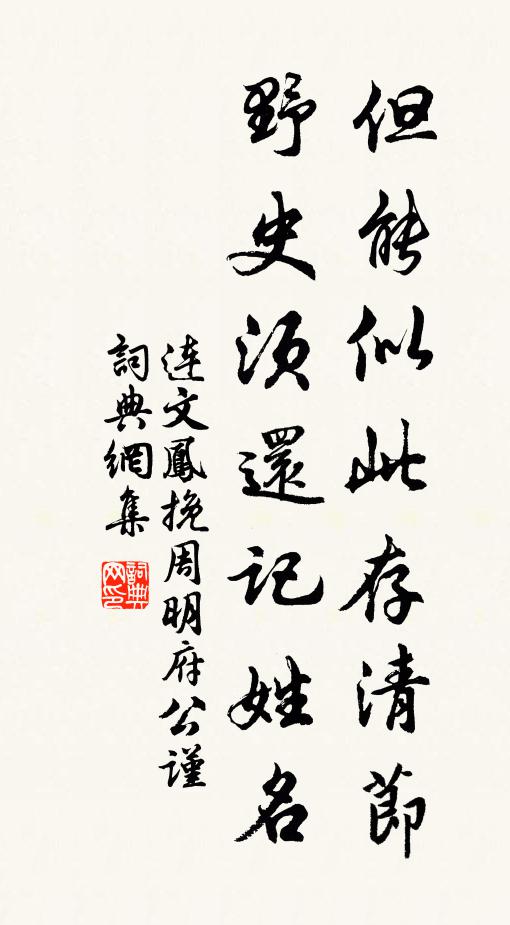 但能似此存清節
野史須還記姓名
連文鳳挽周明府公謹
詞典網集
詞典网印